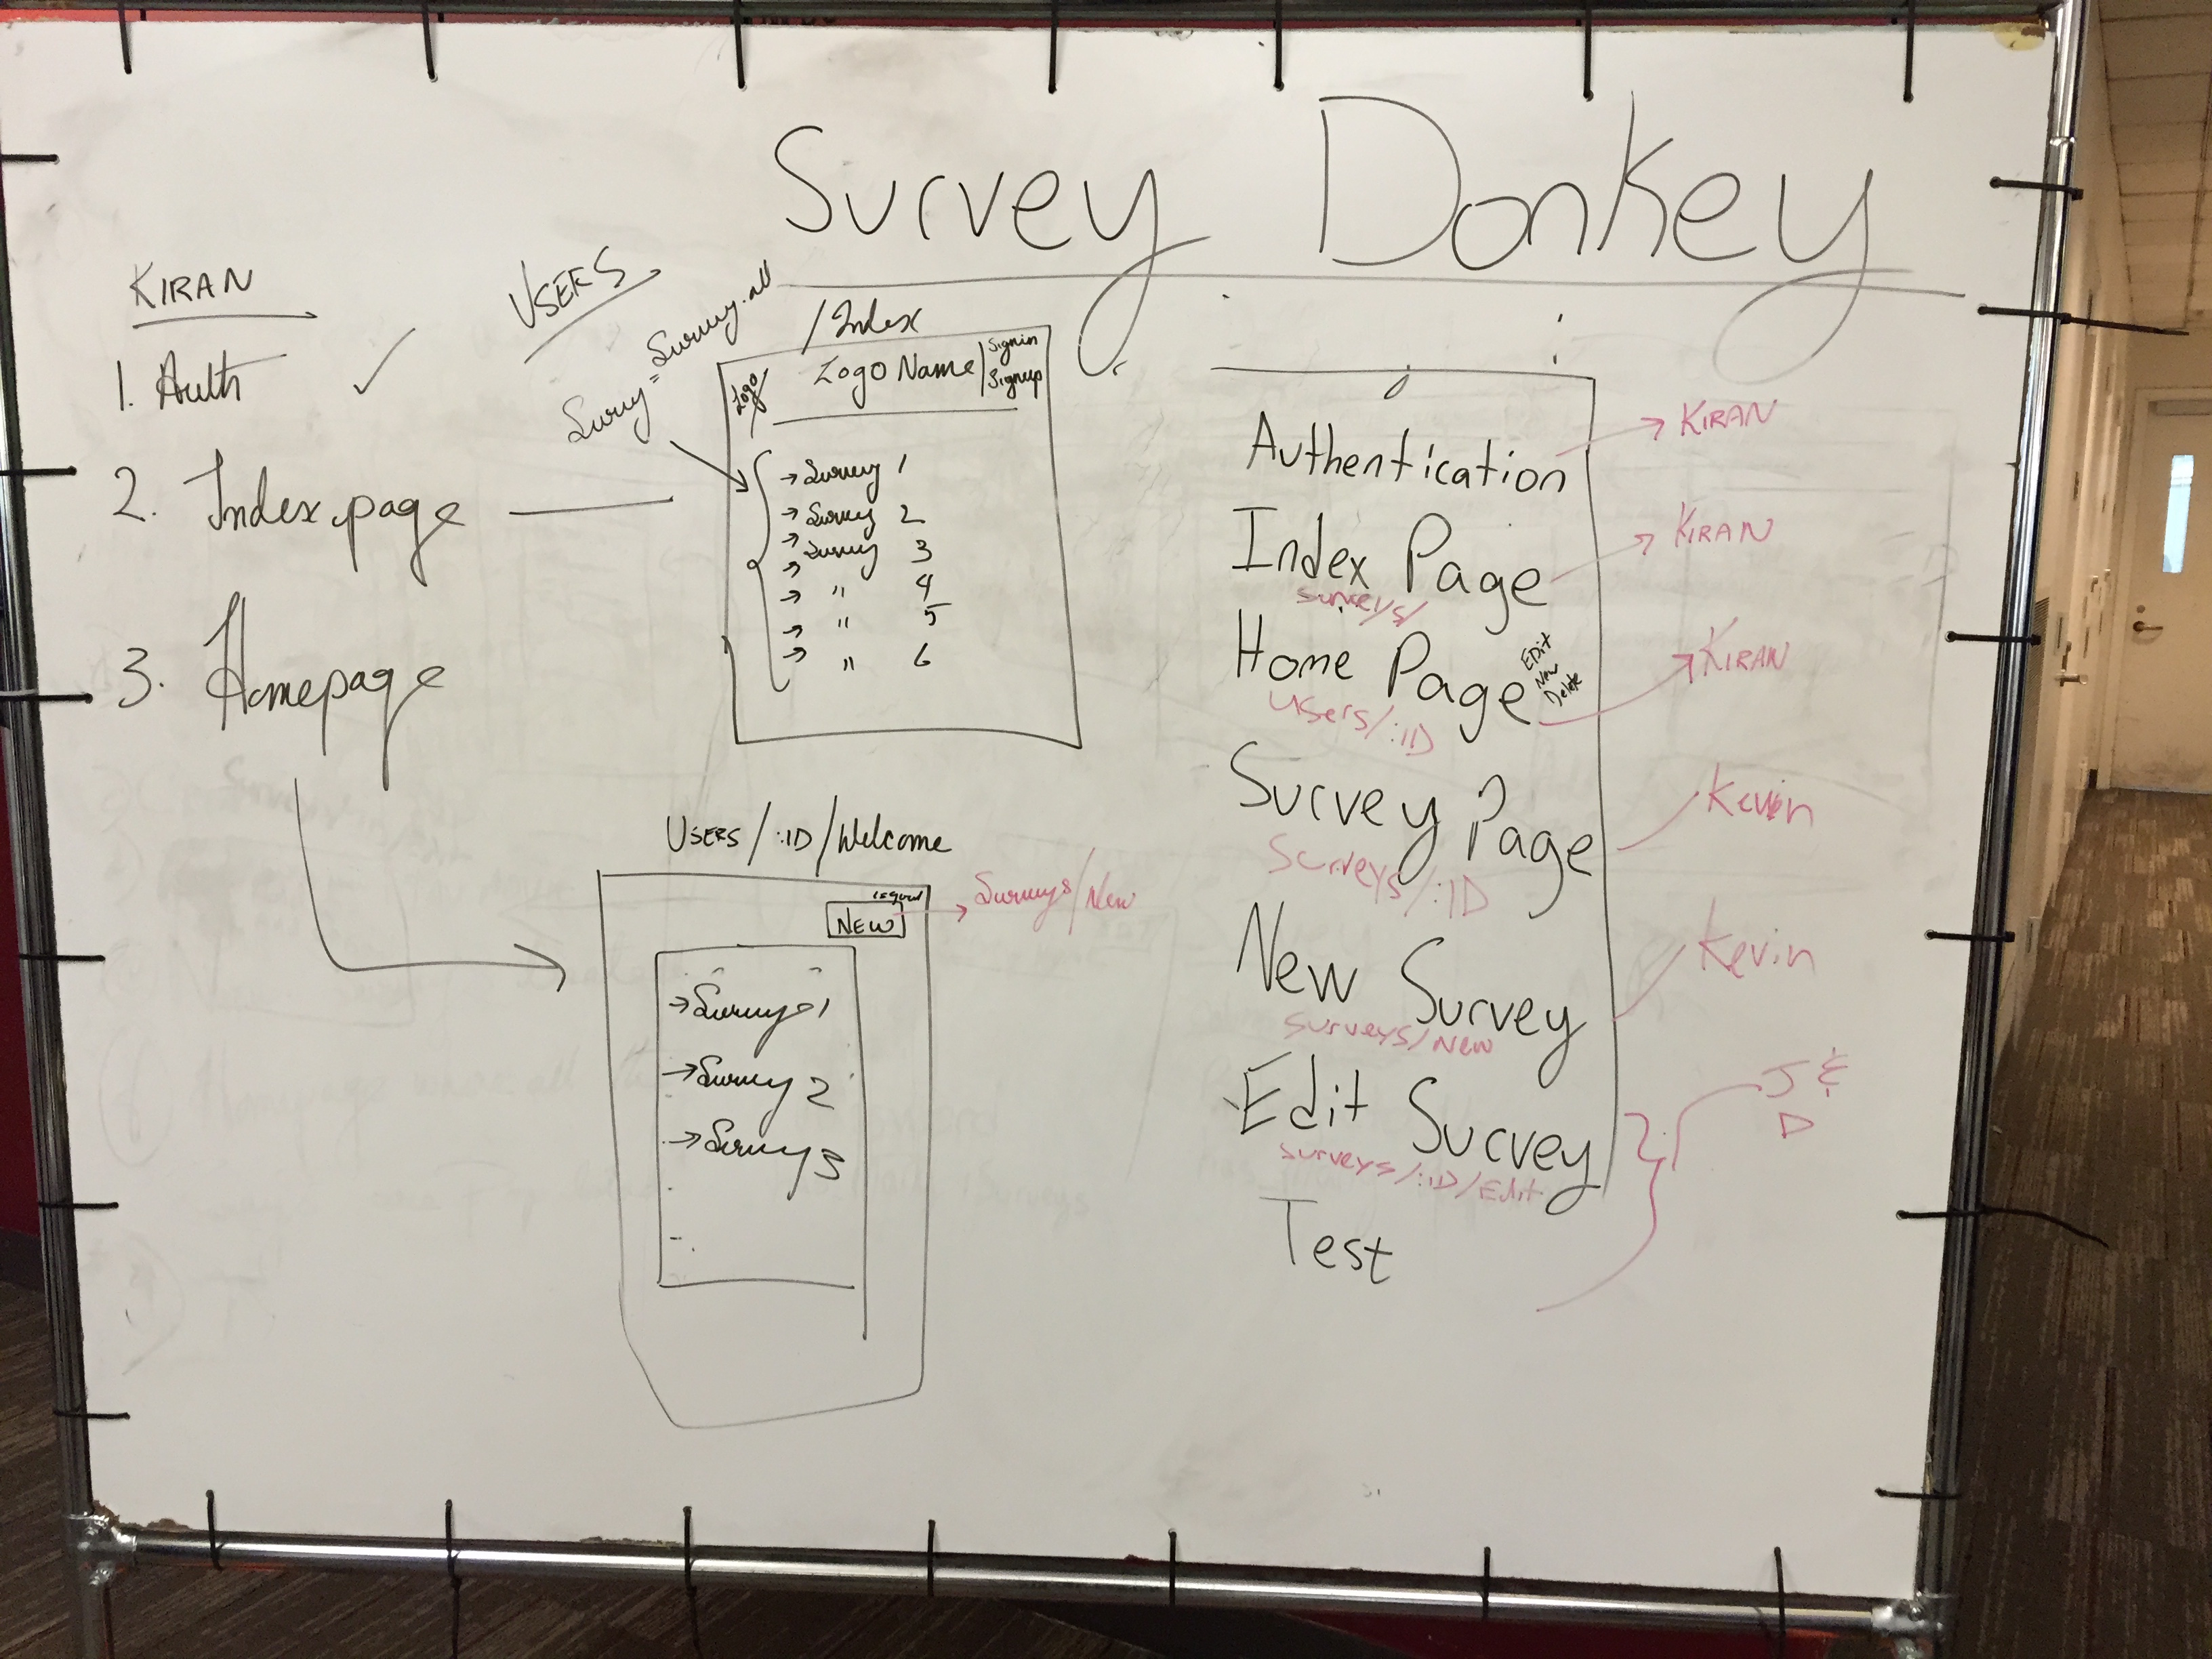 Survey Donkey
KIRAN
1. Auth ✓
2. Index page
3. Homepage
USERS
Survey = Survey.all
/Index
Logo
Logo Name
Signin
Signup
→ Survey 1
→ Survey 2
→ Survey 3
→ " 4
→ " 5
→ " 6
USERS/:ID/Welcome
logout
NEW
Surveys/New
→ Survey 1
→ Survey 2
→ Survey 3
Authentication → KIRAN
Index Page → KIRAN
surveys/
Home Page → KIRAN
EDit
New
Delete
users/:ID
Survey Page Kevin
Surveys/:ID
New Survey Kevin
surveys/New
Edit Survey
surveys/:ID/Edit
Test
J &
D